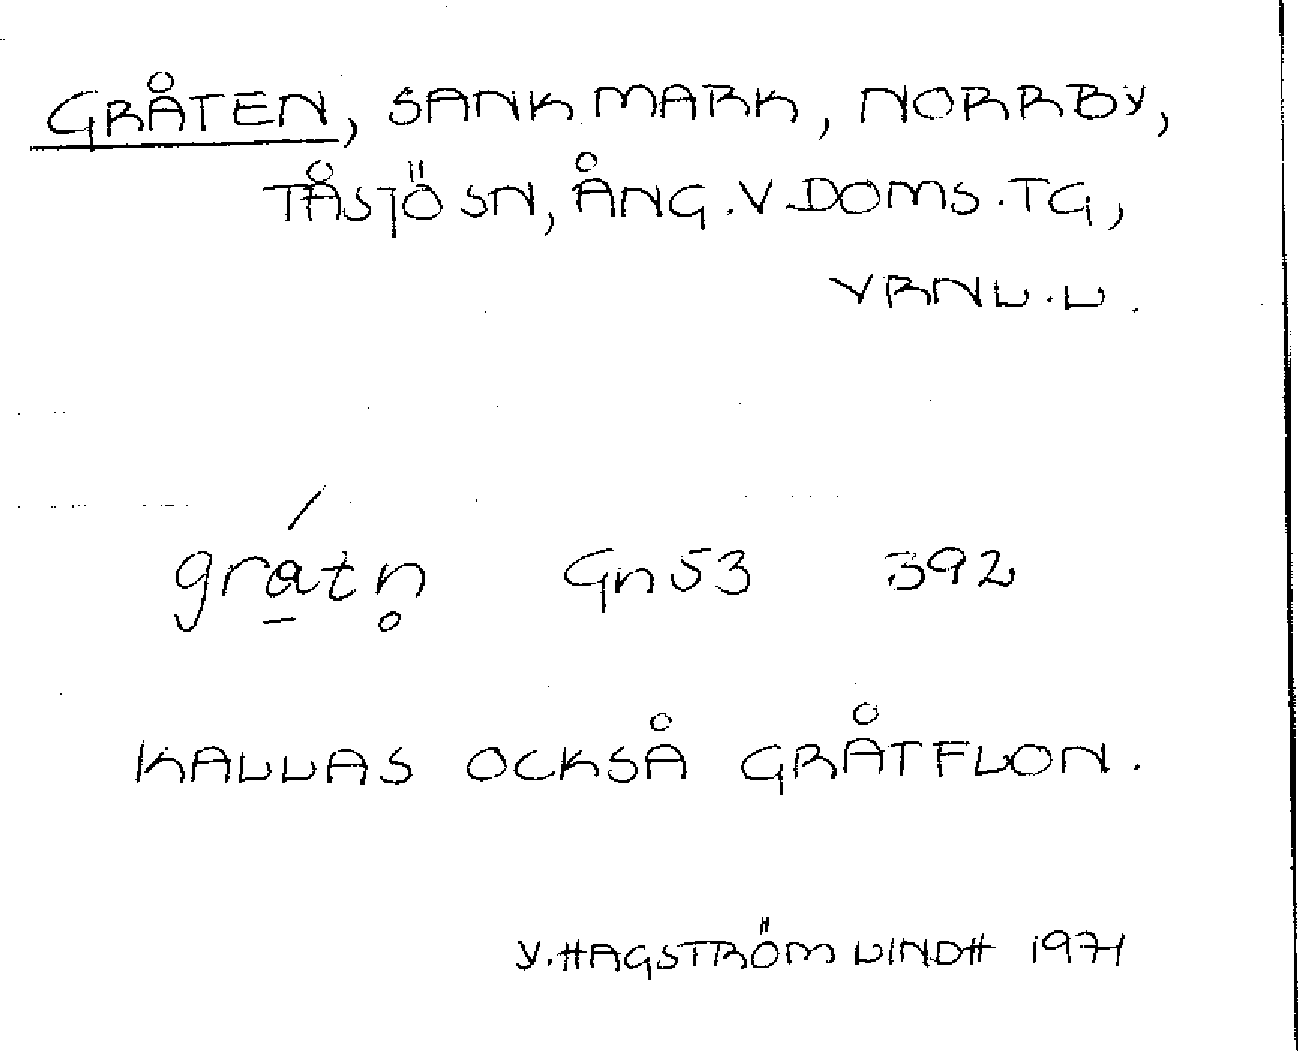 GRÅTEN, SANK MARK, NORRBY,
TÅSJÖ SN, ÅNG. V DOMS. TG,
VRNL. L.
grá̱tn̥ Gn 53 392
KALLAS OCKSÅ GRÅTFLON.
Y. HAGSTRÖM LINDH 1971